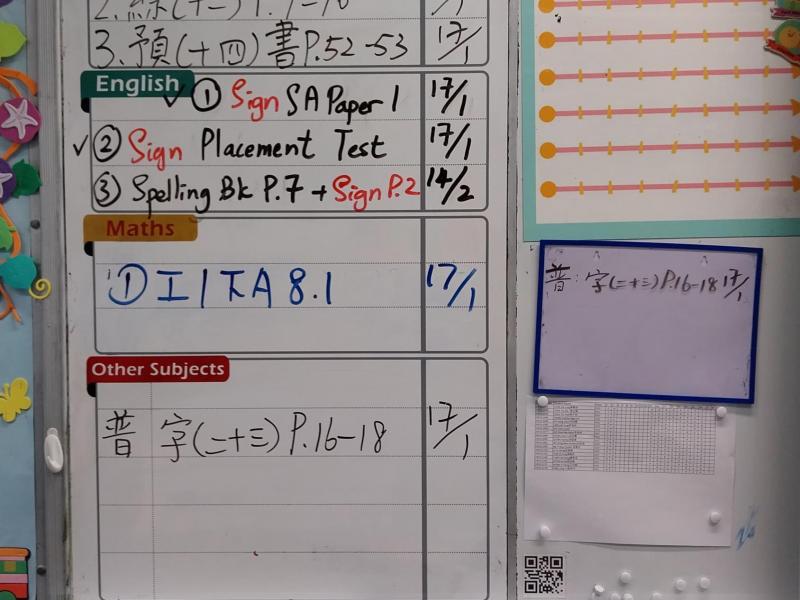 3. 預(十四)書P.52-53 17/1
English
① Sign SA Paper 1 17/1
② Sign Placement Test 17/1
③ Spelling Bk P.7 + Sign P.2 14/2
Maths
① 工1下A 8.1 17/1
Other Subjects
普 字(二十三) P.16-18 17/1
普: 字(二十三)P.16-18 17/1